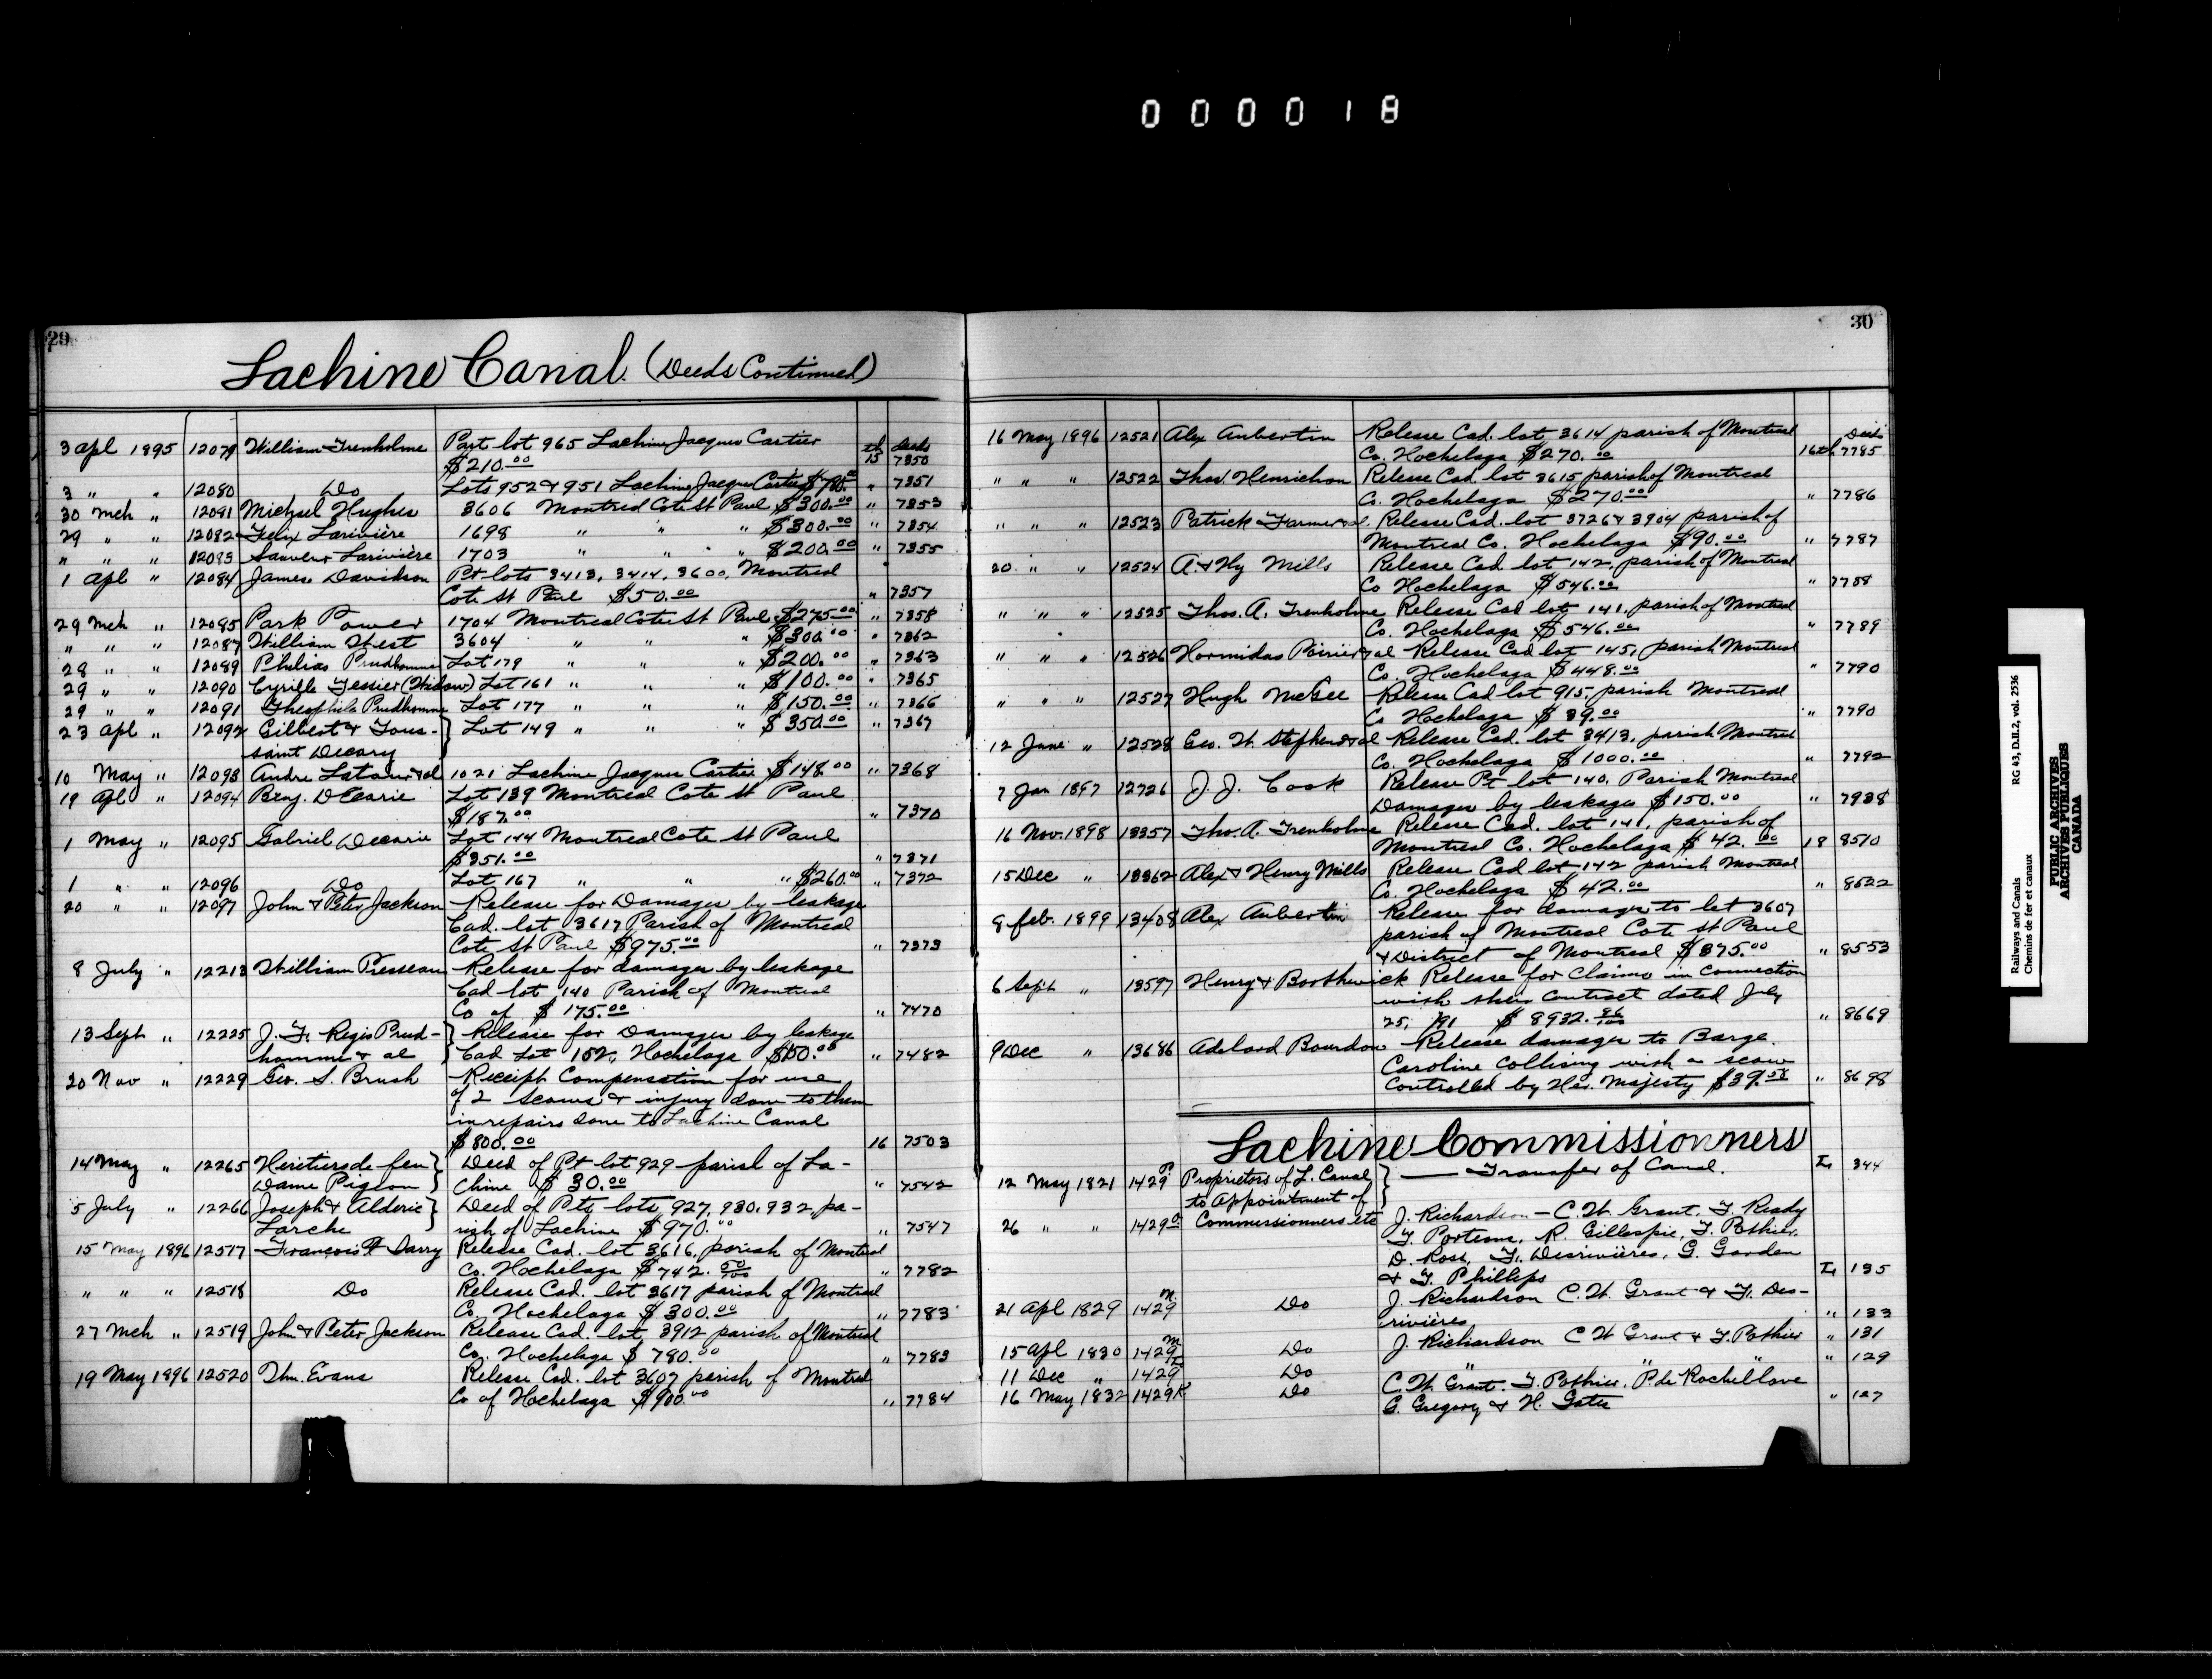 000018
29
Lachine Canal. (Deeds Continued)
3 apl 1895 12079 William Trenholme Part lot 965 Lachine Jacques Cartier
$210.00 th 15 Deeds 7350
3 " " 12080 Do Lots 952 & 951 Lachine Jacques Cartier " 7351
30 Mch " 12081 Michael Hughes 3606 Montreal Cote St Paul $300.00 " 7353
29 " " 12082 Felix Larivière 1698 " " " $300.00 " 7354
" " " 12083 Larivière 1703 " " " $200.00 " 7355
1 Apl " 12084 James Davidson Pt lots 3413, 3414, 3600, Montreal
Cote St Paul $50.00 " 7357
29 Mch " 12085 Park Power 1704 Montreal Cote St Paul $275.00 " 7358
" " " 12087 William West 3604 " " " $300.00 " 7362
28 " " 12089 Philias Prudhomme Lot 179 " " " $200.00 " 7363
29 " " 12090 Cyrille Tessier (Widow) Lot 161 " " " $100.00 " 7365
29 " " 12091 Theophile Prudhomme Lot 177 " " " $150.00 " 7366
23 Apl " 12092 Gilbert & Tous- } Lot 149 " " " $350.00 " 7367
saint Decary
10 May " 12093 Andre Latour & al 1021 Lachine Jacques Cartier $148.00 " 7368
19 Apl " 12094 Benj. Décarie Lot 139 Montreal Cote St Paul
$187.00 " 7370
1 May " 12095 Gabriel Decarie Lot 144 Montreal Cote St Paul
$351.00 " 7371
1 " " 12096 Do Lot 167 " " " $260.00 " 7372
20 " " 12097 John & Peter Jackson Release for Damages by leakage
Cad. lot 3617 Parish of Montreal
Cote St Paul $975.00 " 7373
8 July " 12213 William Presseau Release for damages by leakage
Cad lot 140 Parish of Montreal
Co of $175.00 " 7470
13 Sept " 12225 J. F. Regis Prud- } Release for Damages by leakage
homme & al Cad Lot 152, Hochelaga $150.00 " 7482
20 Nov " 12229 Geo. S. Brush Receipt Compensation for use
of 2 Scows & injury done to them
in repairs done to Lachine Canal
$800.00 16 7503
14 May " 12265 Heritiers de feu } Deed of Pt lot 929 parish of La-
Dame Pigeon chine $30.00 " 7542
5 July " 12266 Joseph & Alderic } Deed of Pts lots 927, 930, 932, pa-
Larche rish of Lachine $970.00 " 7547
15 May 1896 12517 François X Darry Release Cad. lot 3616, parish of Montreal
Co. Hochelaga $742.50/100 " 7782
" " " 12518 Do Release Cad. lot 3617 parish of Montreal
Co. Hochelaga $300.00 " 7783
27 Mch " 12519 John & Peter Jackson Release Cad. lot 3912 parish of Montreal
Co. Hochelaga $780.00 " 7783
19 May 1896 12520 Thn. Evans Release Cad. lot 3607 parish of Montreal
Co of Hochelaga $900.00 " 7784
30
16 May 1896 12521 Alex Aubertin Release Cad. lot 3614 parish of Montreal
Co. Hochelaga $270.00 16th Deeds 7785
" " " 12522 Thos. Henrichon Release Cad. lot 3615 parish of Montreal
Co. Hochelaga $270.00 " 7786
" " " 12523 Patrick Farmer & al. Release Cad. lot 3726 & 3904 parish of
Montreal Co. Hochelaga $90.00 " 7787
20 " " 12524 A. & Hy Mills Release Cad. lot 142, parish of Montreal
Co Hochelaga $546.00 " 7788
" " " 12525 Thos. A. Trenholme Release Cad lot 141, parish of Montreal
Co. Hochelaga $546.00 " 7789
" " " 12526 Hormidas Poirier & al Release Cad lot 145, parish Montreal
Co. Hochelaga $448.00 " 7790
" " " 12527 Hugh McGee Release Cad lot 915, parish Montreal
Co Hochelaga $39.00 " 7790
12 June " 12528 Geo. W. Stephens & al Release Cad. lot 3413, parish Montreal
Co. Hochelaga $1000.00 " 7792
7 Jan 1897 12726 J. J. Cook Release Pt lot 140, Parish Montreal
Damages by leakages $150.00 " 7938
16 Nov. 1898 13357 Tho. A. Trenholme Release Cad. lot 141, parish of
Montreal Co. Hochelaga $42.00 18 8510
15 Dec " 13362 Alex & Henry Mills Release Cad lot 142 parish Montreal
Co. Hochelaga $42.00 " 8522
8 feb. 1899 13408 Alex Aubertin Release for damage to lot 3607
parish of Montreal Cote St Paul
& District of Montreal $375.00 " 8553
6 Sept " 13597 Henry & Boothwick Release for claims in connection
with their contract dated July
25, /91 $8932.86/100 " 8669
9 Dec " 13686 Adelard Bourdon Release damages to Barge.
Caroline Collising with a scow
controlled by Her. Majesty $39.58 " 8698
Lachine Commissionners
12 May 1821 1429P Proprietors of L. Canal } — Transfer of Canal. L 344
to Appointment of
26 " " 1429O Commissionners etc J. Richardson – C. W. Grant. F. Ready
T. Porteous, R. Gillespie, T. Pothier,
D. Ross, F. Desrivières, G. Garden
& T. Phillips L 135
21 Apl 1829 1429N Do J. Richardson C. W. Grant & F. Des-
rivières " 133
15 Apl 1830 1429M Do J. Richardson C W Grant & T. Pothier " 131
11 Dec " 1429L Do " " " " 129
16 May 1832 1429K Do C. W. Grant. T. Pothier, P. de Rochellave
G. Gregory & H. Gates " 127
Railways and Canals RG 43, D.II.2, vol. 2536
Chemins de fer et canaux
PUBLIC ARCHIVES
ARCHIVES PUBLIQUES
CANADA